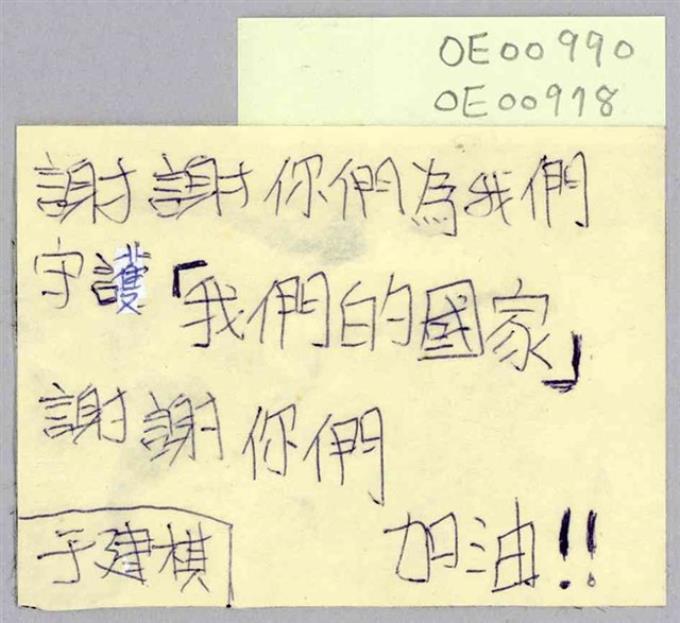 OE00990
OE00918
謝謝你們為我們
守護「我們的國家」
謝謝你們
加油!!
于建棋